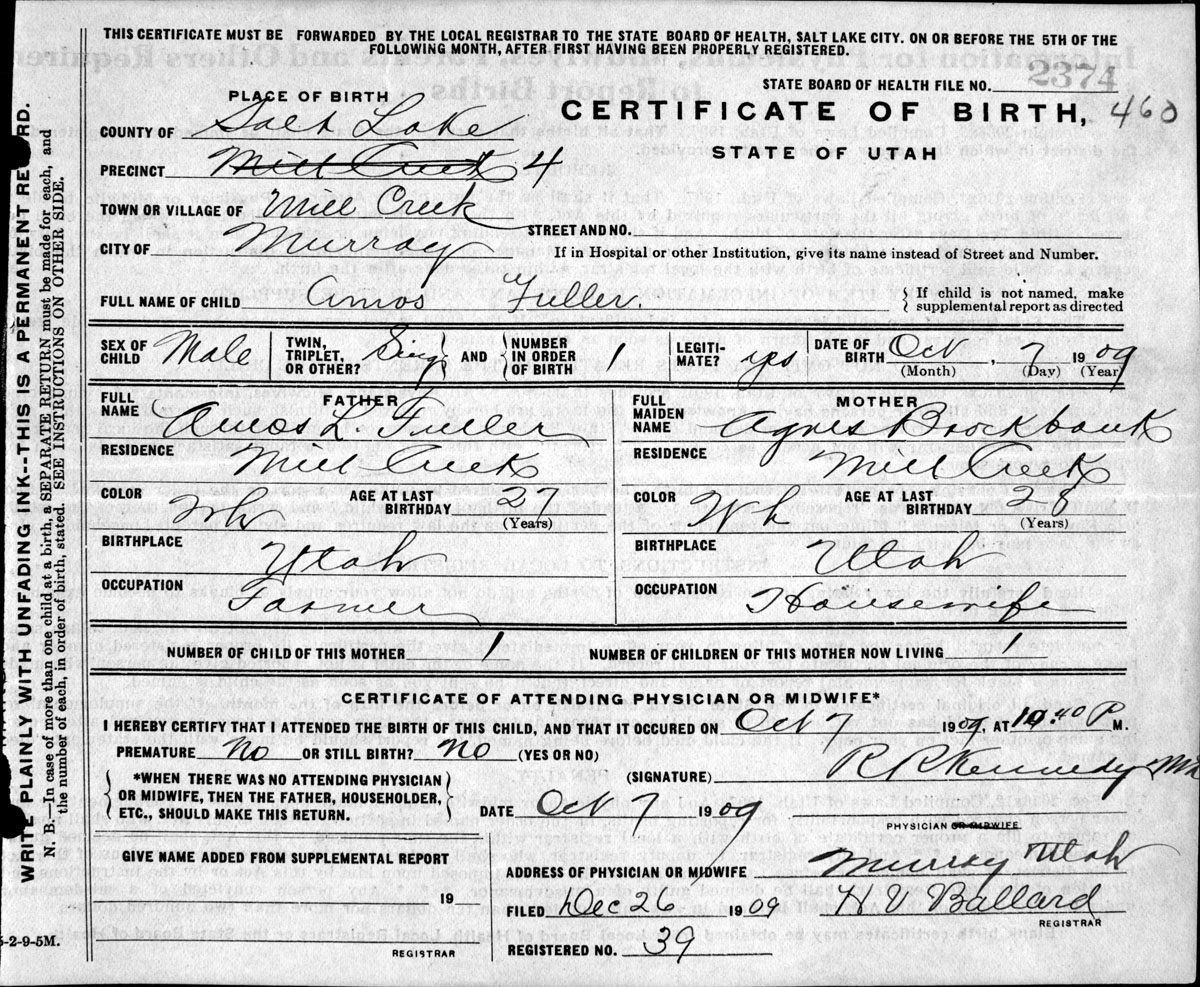 THIS CERTIFICATE MUST BE FORWARDED BY THE LOCAL REGISTRAR TO THE STATE BOARD OF HEALTH, SALT LAKE CITY. ON OR BEFORE THE 5TH OF THE
FOLLOWING MONTH, AFTER FIRST HAVING BEEN PROPERLY REGISTERED.
STATE BOARD OF HEALTH FILE NO. 2374
PLACE OF BIRTH
CERTIFICATE OF BIRTH, 460
COUNTY OF Salt Lake
STATE OF UTAH
PRECINCT Mill Creek 4
TOWN OR VILLAGE OF Mill Creek
STREET AND NO.
CITY OF Murray
If in Hospital or other Institution, give its name instead of Street and Number.
FULL NAME OF CHILD Amos Fuller. If child is not named, make
supplemental report as directed
SEX OF CHILD Male TWIN, TRIPLET, OR OTHER? Sing AND NUMBER IN ORDER OF BIRTH 1 LEGITI-MATE? yes DATE OF BIRTH Oct, 7 1909
(Month) (Day) (Year)
FATHER
FULL NAME Amos L. Fuller
RESIDENCE Mill Creek
COLOR Wh AGE AT LAST BIRTHDAY 27
(Years)
BIRTHPLACE Utah
OCCUPATION Farmer
MOTHER
FULL MAIDEN NAME Agnes Brockbank
RESIDENCE Mill Creek
COLOR Wh AGE AT LAST BIRTHDAY 28
(Years)
BIRTHPLACE Utah
OCCUPATION Housewife
NUMBER OF CHILD OF THIS MOTHER 1 NUMBER OF CHILDREN OF THIS MOTHER NOW LIVING 1
CERTIFICATE OF ATTENDING PHYSICIAN OR MIDWIFE*
I HEREBY CERTIFY THAT I ATTENDED THE BIRTH OF THIS CHILD, AND THAT IT OCCURED ON Oct 7 1909, AT 10 40 P M.
PREMATURE No OR STILL BIRTH? No (YES OR NO)
(SIGNATURE) R R Kennedy Md
*WHEN THERE WAS NO ATTENDING PHYSICIAN
OR MIDWIFE, THEN THE FATHER, HOUSEHOLDER,
ETC., SHOULD MAKE THIS RETURN.
DATE Oct 7 1909
PHYSICIAN OR MIDWIFE
GIVE NAME ADDED FROM SUPPLEMENTAL REPORT
19
REGISTRAR
ADDRESS OF PHYSICIAN OR MIDWIFE Murray Utah
FILED Dec 26 1909 H V Ballard
REGISTRAR
REGISTERED NO. 39
5-2-9-5M.
WRITE PLAINLY WITH UNFADING INK--THIS IS A PERMANENT RECORD.
N. B.—In case of more than one child at a birth, a SEPARATE RETURN must be made for each, and
the number of each, in order of birth, stated. SEE INSTRUCTIONS ON OTHER SIDE.